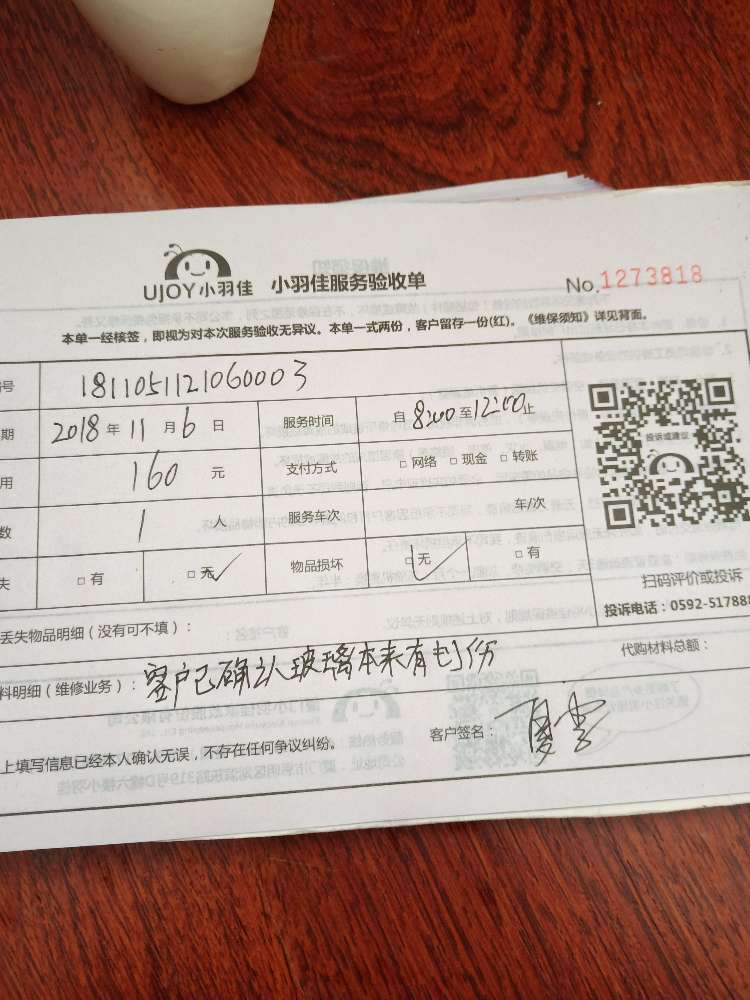 UJOY小羽佳 小羽佳服务验收单 No.1273818
本单一经核签，即视为对本次服务验收无异议。本单一式两份，客户留存一份(红)。《维保须知》详见背面。
号 1811051121060003
期 2018年11月6日 服务时间 自8:00至12:00止
用 160元 支付方式 □网络 □现金 □转账
数 1人 服务车次 车/次
失 □有 □无 物品损坏 □无 □有
投诉或建议
扫码评价或投诉
投诉电话：0592-517888
丢失物品明细（没有可不填）：
料明细（维修业务）：客户已确认玻璃本来有刮伤 代购材料总额：
上填写信息已经本人确认无误，不存在任何争议纠纷。 客户签名：